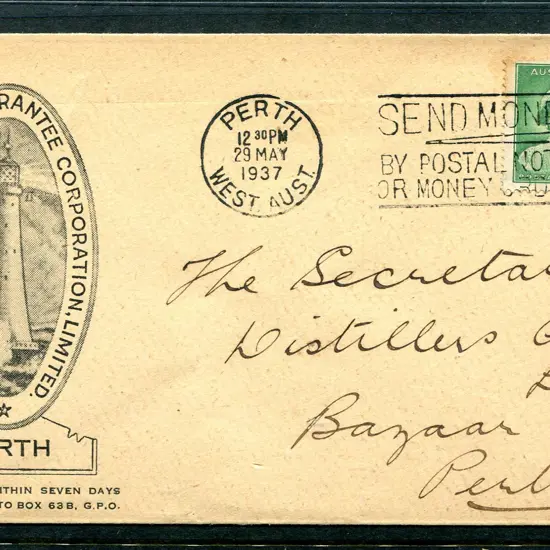 RANTEE CORPORATION, LIMITED.
RTH
ITHIN SEVEN DAYS
TO BOX 63B, G.P.O.
PERTH
12 30PM
29 MAY
1937
WEST. AUST.
SEND MONE
BY POSTAL NOT
OR MONEY ORD
AUS
The Secreta
Distillers
Bazaar
Pert